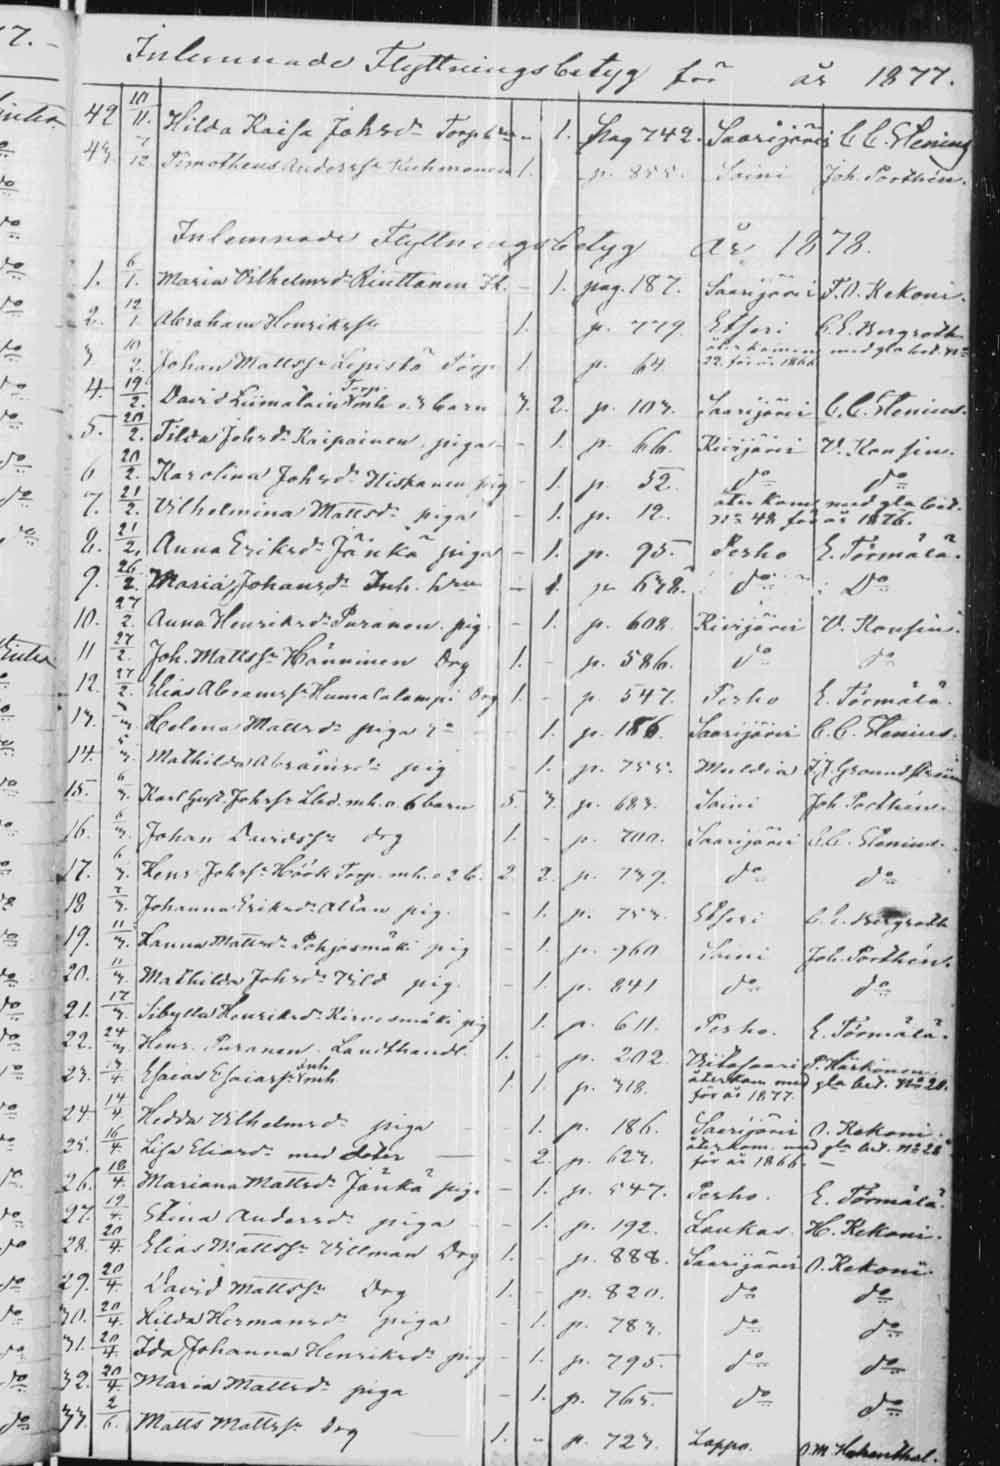 Inlemnade Flyttningsbetyg för år 1877.
42 10/11. Hilda Kaisa Johsd: Torp - 1. pag 742. Saarijärvi C. C. Stenius
43. 7/12 Timotheus Anderss: 1. p. 855. Soini Joh. Porthén.
Inlemnade Flyttningsbetyg år 1878.
1. 6/1. Maria Vilhelmsd: Rinttanen - 1. pag. 187. Saarijärvi Rekoni.
2. 12/1. Abraham Henrikss: 1. p. 779. Etseri C. E. Bergroth
3 10/2. Johan Mattss: Lepistö Torp. 1 p. 64. återkommen med gla bet. No 22. för år 1866
4. 19/2. David Liimatain Torp. mh. o. 3 barn 3. 2. p. 103. Saarijärvi C. C. Stenius.
5. 20/2. Tilda Johsd: Kaipainen piga - 1. p. 66. Kivijärvi V. Konsin.
6 20/2. Karolina Johsd: Hiskanen pig - 1. p. 52. do do
7. 21/2. Vilhelmina Mattsd: piga - 1. p. 12. återkom med gla bet. No 48 för år 1876.
8. 21/2. Anna Eriksd: Jänkä piga - 1. p. 95. Perho E. Törmälä.
9. 26/2. Maria Johansd: Inh. hru - 1. p 678. do Do
10. 27/2. Anna Henriksd: Puranen. pig. - 1. p. 608. Kivijärvi V. Konsin.
11 27/2. Joh. Mattss: Hänninen Drg 1. - p. 586. do do
12. 27/2. Elias Abramss: Humalalampi Drg 1. - p. 547. Perho E. Törmälä.
13. Helena Mattsd: piga - 1. p. 186. Saarijärvi C. C. Stenius.
14. 5/3. Mathilda Abramsd: pig - 1. p. 755. Multia Groundström
15. 6/3. Karl Gust. Johss: mh. o. 6 barn 5. 3. p. 683. Soini Joh. Porthén.
16. 6/3. Johan Davidss: drg 1. - p. 700. Saarijärvi C. C. Stenius.
17. 6/3. Henr. Johss: Höök Torp. mh. o 2 b. 2 2. p. 739. do do
18 7/3. Johanna Eriksd: pig. - 1. p. 753. Etseri C. E. Bergroth
19. 11/3. Sanna Mattsd: Pohjosmäki pig - 1. p. 960 Soini Joh. Porthén.
20. 11/3. Mathilda Johsd: Vild pig. - 1. p. 841 do do
21. 17/3. Sibylla Henriksd: Kirvesmäki pig 1. p. 611. Perho. E. Törmälä.
22. 24/3. Henr. Puranen. Landthandl. 1. - p. 202. Viitasaari P. Härkönen.
23. 3/4. Esaias Esaiass: Inh. mh. 1. 1. p. 318. återkom med gla bet. No 20. för år 1877.
24 14/4. Hedda Vilhelmsd: piga - 1. p. 186. Saarijärvi O. Rekoni.
25. 16/4. Lisa Eliasd: med dotter - 2. p. 623. återkom. med gla bet. No 28 för år 1866.
26. 18/4. Mariana Mattsd: Jänkä pig. - 1. p. 547. Perho. E. Törmälä.
27. 19/4. Stina Andersd: piga - 1. p. 192. Laukas. H. Rekoni.
28. 20/4. Elias Mattss: Villman Drg 1. - p. 888. Saarijärvi O. Rekoni.
29. 20/4. David Mattss: drg 1. - p. 820. do do
30. 20/4. Hilda Hermansd: piga - 1. p. 783. do do
31. 20/4. Ida Johanna Henriksd: pig - 1. p. 795. do do
32. 20/4. Maria Mattsd: piga - 1. p. 765. do do
33. 2/6. Matts Mattss: drg 1. - p. 723. Lappo.